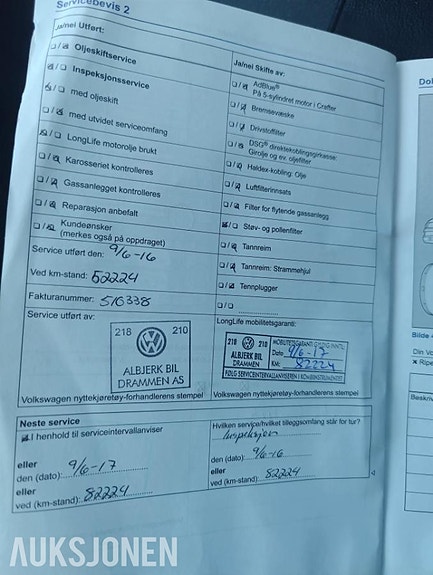 Servicebevis 2
Ja/nei Utført:
Oljeskiftservice
Inspeksjonsservice
med oljeskift
med utvidet serviceomfang
LongLife motorolje brukt
Karosseriet kontrolleres
Gassanlegget kontrolleres
Reparasjon anbefalt
Kundeønsker
(merkes også på oppdraget)
Service utført den: 9/6-16
Ved km-stand: 52224
Fakturanummer: 510338
Service utført av:
218 210
ALBJERK BIL
DRAMMEN AS
Volkswagen nyttekjøretøy-forhandlerens stempel
Ja/nei Skifte av:
AdBlue®
På 5-sylindret motor i Crafter
Bremsevæske
Drivstoffilter
DSG® direktekoblingsgirkasse:
Girolje og ev. oljefilter
Haldex-kobling: Olje
Luftfilterinnsats
Filter for flytende gassanlegg
Støv- og pollenfilter
Tannreim
Tannreim: Strammehjul
Tennplugger
LongLife mobilitetsgaranti:
218 210
ALBJERK BIL
DRAMMEN
MOBILITETSGARANTI GYLDIG INNTIL
Dato 9/6-17
Km: 82224
FØLG SERVICEINTERVALLANVISEREN I KOMBIINSTRUMENTET
Volkswagen nyttekjøretøy-forhandlerens stempel
Neste service
I henhold til serviceintervallanviser
eller
den (dato): 9/6-17
eller
ved (km-stand): 82224
Hvilken service/hvilket tilleggsomfang står for tur?
Inspeksjon
den (dato): 9/6-16
eller
ved (km-stand): 82224
Bilde
Din Vo
Ripe
Beskriv
AUKSJONEN